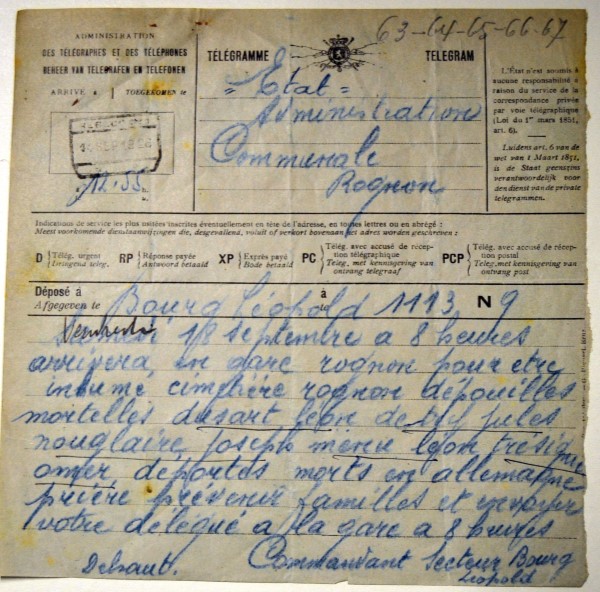 63-64-65-66-67
ADMINISTRATION
DES TÉLÉGRAPHES ET DES TÉLÉPHONES
BEHEER VAN TELEGRAFEN EN TELEFONEN
ARRIVÉ à TOEGEKOMEN te
12.55
TÉLÉGRAMME TELEGRAM
= Etat =
Administration
Communale
Rognon
L'État n'est soumis à
aucune responsabilité à
raison du service de la
correspondance privée
par voie télégraphique
(Loi du 1er mars 1851,
art. 6).
Luidens art. 6 van de
wet van 1 Maart 1851,
is de Staat geenszins
verantwoordelijk voor
den dienst van de private
telegrammen.
Indications de service les plus usitées inscrites éventuellement en tête de l'adresse, en toutes lettres ou en abrégé :
Meest voorkomende dienstaanwijzingen die, desgevallend, voluit of verkort bovenaan het adres worden geschreven :
D Télég. urgent
Dringend teleg.
RP Réponse payée
Antwoord betaald
XP Exprès payé
Bode betaald
PC Télég. avec accusé de réception télégraphique
Teleg. met kennisgeving van ontvangst telegraaf
PCP Télég. avec accusé de réception postal
Teleg. met kennisgeving van ontvangst post
Déposé à Bourg Léopold à 1113 N 9
Afgegeven te
18 septembre a 8 heures
arrivera en gare rognon pour etre
inhume cimetière rognon dépouilles
mortelles dusart léon jules
joseph menu léon
omer deportes morts en allemagne
prière prévenir familles et envoyer
votre délégué a la gare a 8 heures
Commandant Secteur Bourg
Léopold